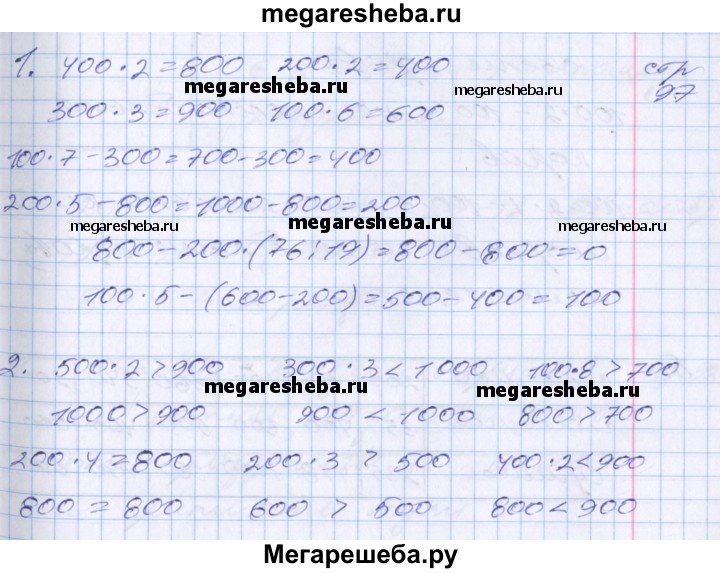 megaresheba.ru
1. 400·2=800 200·2=400 стр
megaresheba.ru megaresheba.ru 97
300·3=900 100·6=600
100·7-300=700-300=400
200·5-800=1000-800=200
megaresheba.ru megaresheba.ru megaresheba.ru
800-200·(76:19)=800-800=0
100·5-(600-200)=500-400=100
2. 500·2>900 300·3<1000 100·8>700
megaresheba.ru megaresheba.ru
1000>900 900<1000 800>700
200·4=800 200·3>500 400·2<900
800=800 600>500 800<900
Мегарешеба.ру